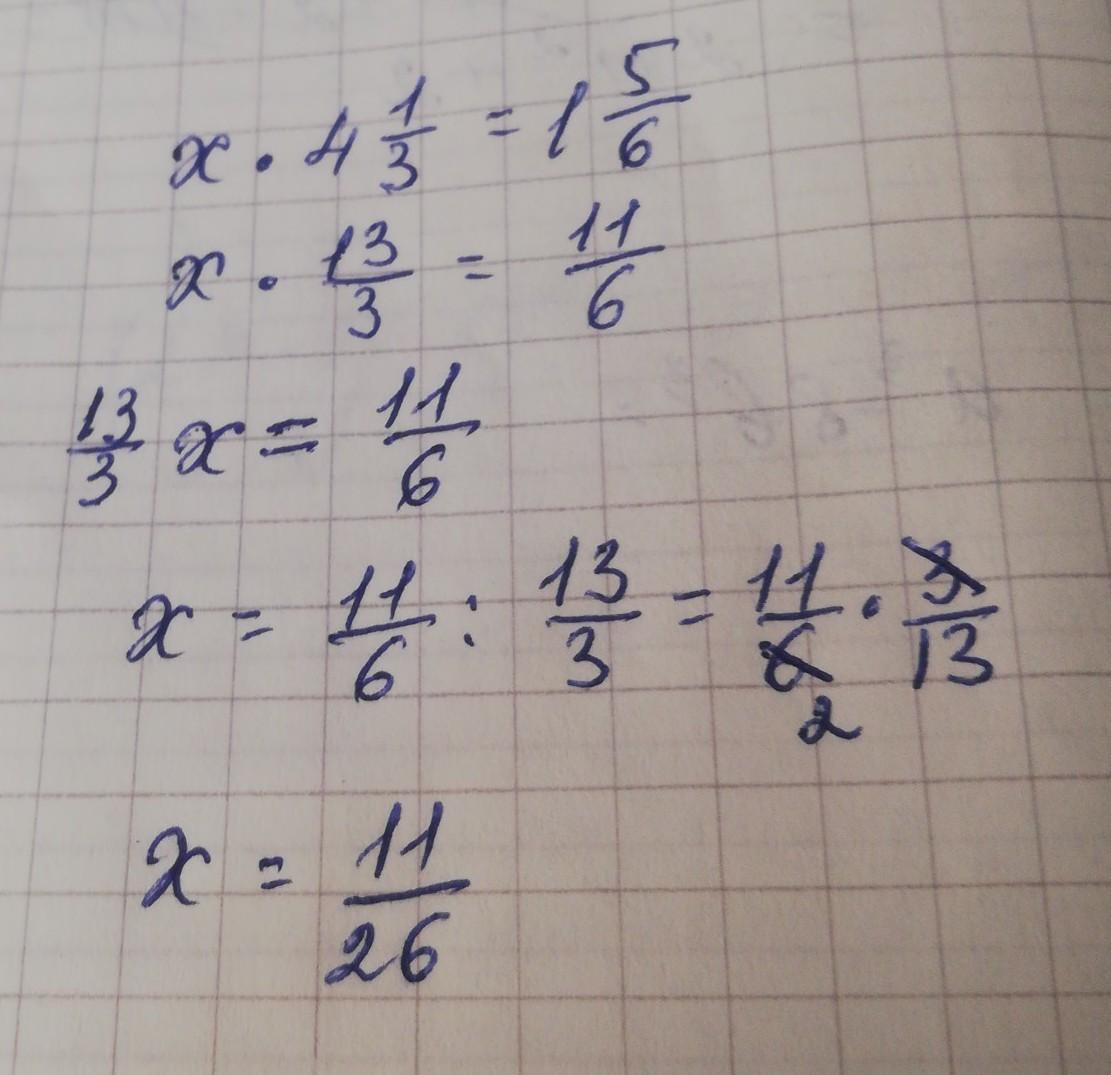 x · 4 1/3 = 1 5/6
x · 13/3 = 11/6
13/3 x = 11/6
x = 11/6 : 13/3 = 11/6 · 3/13
2
x = 11/26